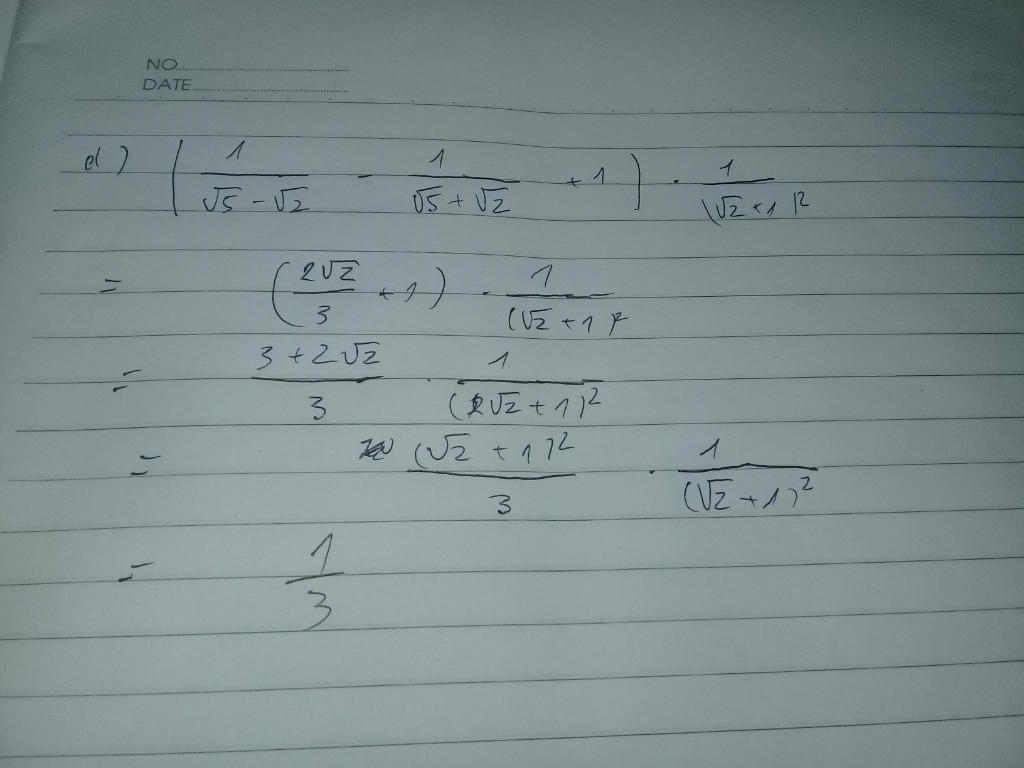 NO
DATE
d) ( 1/(√5 - √2) - 1/(√5 + √2) + 1 ) · 1/(√2 + 1)²
= (2√2/3 + 1) · 1/(√2 + 1)²
= (3 + 2√2)/3 · 1/(√2 + 1)²
= (√2 + 1)²/3 · 1/(√2 + 1)²
= 1/3